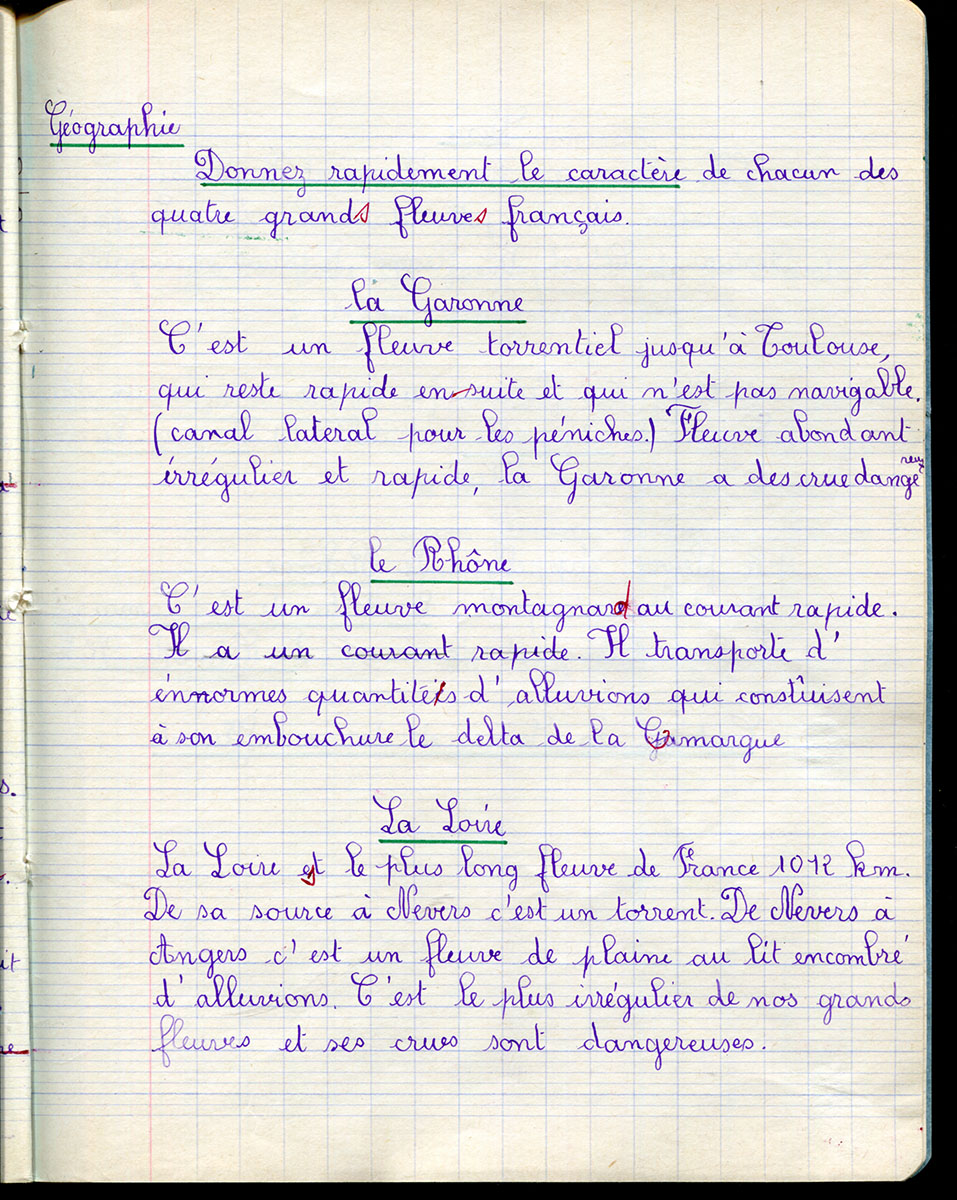 Géographie
Donnez rapidement le caractère de chacun des
quatre grands fleuves français.
la Garonne
C'est un fleuve torrentiel jusqu'à Toulouse,
qui reste rapide en suite et qui n'est pas navigable.
(canal lateral pour les péniches.) Fleuve abondant
irrégulier et rapide, la Garonne a des crue dangé
reux
le Rhône
C'est un fleuve montagnard au courant rapide.
Il a un courant rapide. Il transporte d'
énnormes quantités d'alluvions qui constûisent
à son embouchure le delta de la Camargue
La Loire
La Loire est le plus long fleuve de France 1012 km.
De sa source à Nevers c'est un torrent. De Nevers à
Angers c'est un fleuve de plaine au lit encombré
d'alluvions. C'est le plus irrégulier de nos grands
fleuves et ses crues sont dangereuses.